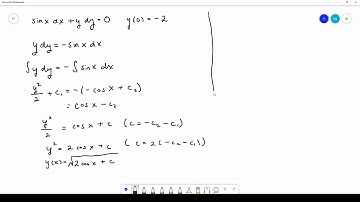 sinx dx + y dy = 0 y(0) = -2
y dy = -sinx dx
∫ y dy = -∫ sinx dx
y²/2 + c₁ = -(-cosx + c₂)
= cosx - c₂
y²/2 = cosx + c (c = -c₂ - c₁)
y² = 2cosx + c (c = 2(-c₂ - c₁))
y(x) = √2cosx + c